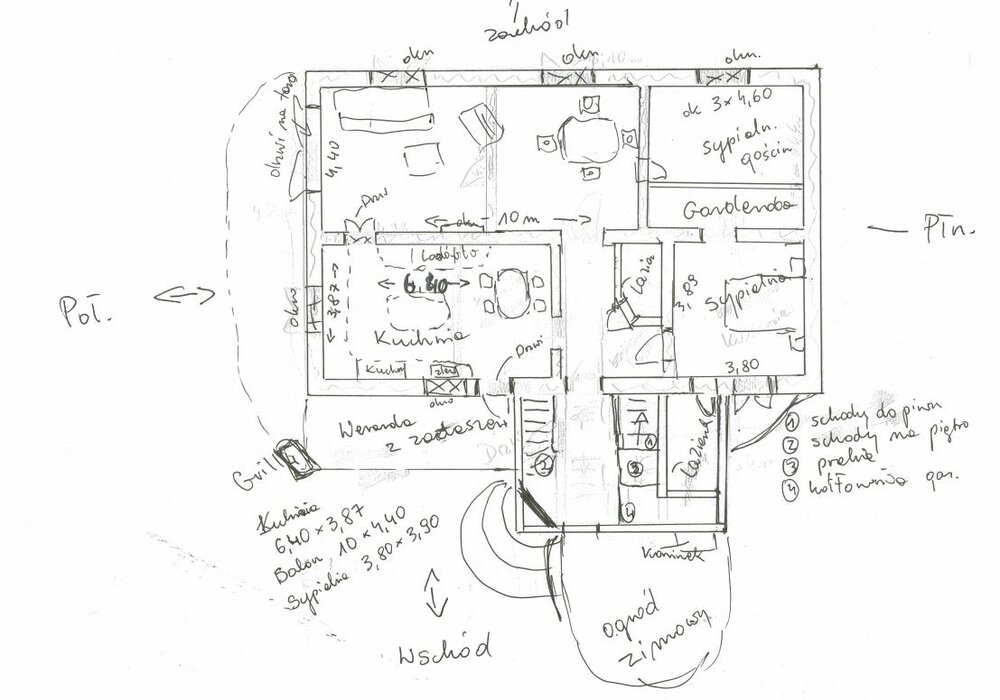 zachód
okn
okn
okn.
drzwi na taras
4,40
ok 3x4,60
sypialn.
gościn
Drzwi
okno
10 m
Garderoba
Płn.
Lodówka
6,40
3,87
Kuchnia
łazien
3,83
Sypialnia
3,80
Poł.
okno
Kuchn
zlew
Drzwi
okno
Weranda
z zadaszen
Grill
4
2
1
3
4
Łazienk
1 schody do piwn
2 schody na piętro
3 pralnia
4 kotłownia gaz.
Kuchnia
6,40 x 3,87
Balon 10 x 4,40
Sypialnia 3,80 x 3,90
Kominek
Wschód
ogród
zimowy